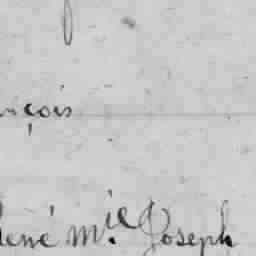 nçois
René m.ie Joseph